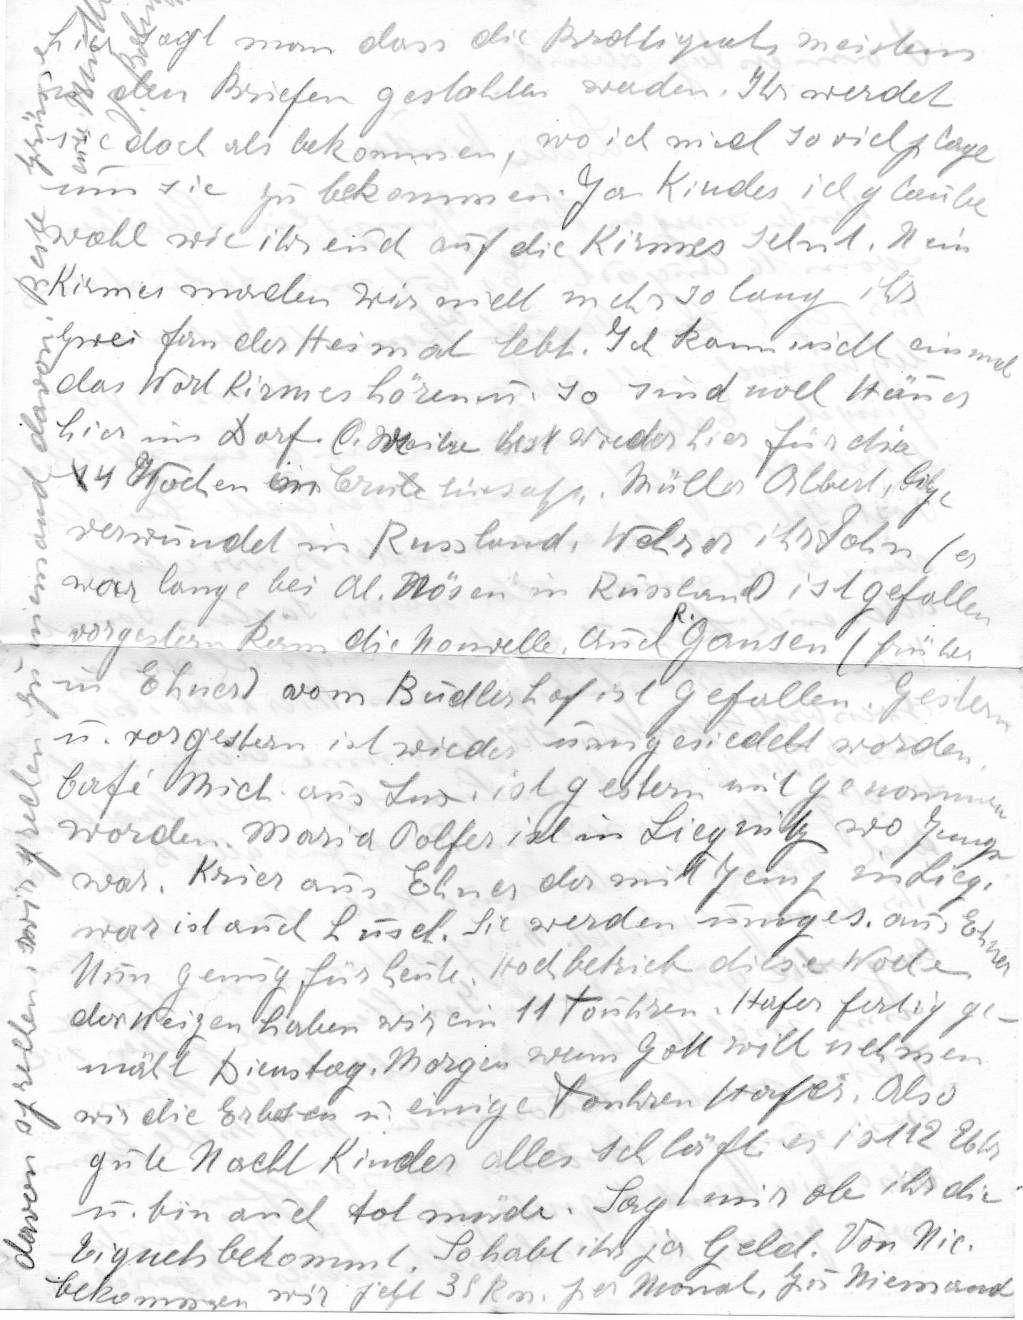 hier sagt man dass die Brottiquets meistens
in den Briefen gestohlen werden. Ihr werdet
sie doch als bekommen, wo ich mich so viel plage
um sie zu bekommen. Ja Kinder ich glaube
wohl wie ihr euch auf die Kirmes sehnt. Nein
Kirmes machen wir nicht mehr so lang ihr
zwei fern der Heimat lebt. Ich kann nicht einmal
das Wort Kirmes hören u. so sind noch Häuser
hier im Dorf. wieder hier für die
14 Wochen Müller Albert,
verwundet in Russland. ihr Sohn (er
war lange bei Al. Rösen in Russland) ist gefallen
vorgestern kam die Nouvelle. Auch R. Gansen (früher
in Ehner) vom Budlerhof ist gefallen. Gestern
u. vorgestern ist wieder umgesiedelt worden.
Café Mich. aus Lux. ist gestern mitgenommen
worden. Maria Polfer ist in Liegnitz wo Jengy
war. Krier aus Ehner der mit Jeng in Lieg.
war ist auch Lusch. Sie werden umges. aus Ehner
Nun genug für heute. Hochbetrieb diese Woche
der Weizen haben wir ein 11 Touhren. Hafer fertig ge-
mäht Dienstag. Morgen wenn Gott will nehmen
wir die Erbsen u. einige Touhren Hafer. Also
gute Nacht Kinder alles schläft es ist 12 Uhr
u. bin auch tot müde. Sag mir ob ihr die
Tiquets bekommt. So habt ihr ja Geld. Von Nic.
bekommen wir jetzt 35 Rm. per Monat. Zu Niemand
davon sprechen, wir reden zu niemand davon. Beste Grüsse